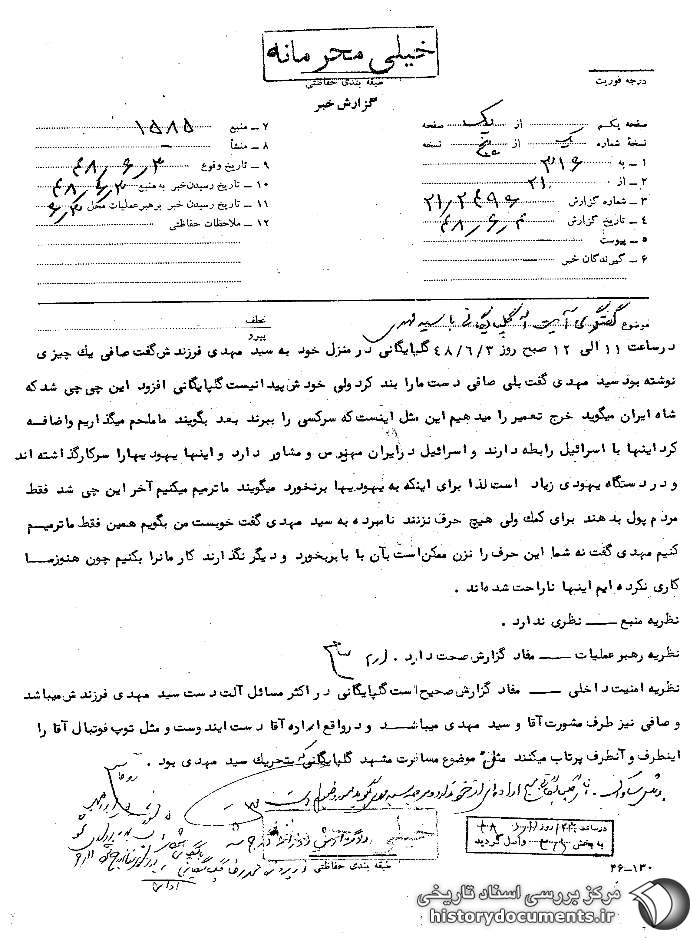 خیلی محرمانه
طبقه بندی حفاظتی
درجه فوریت
گزارش خبر
صفحه یکم از یک صفحه
نسخهٔ شماره یک از پنج نسخه
۱ ـ به ۳۱۶
۲ ـ از ۲۱
۳ ـ شماره گزارش ۲۱/۲۴۹۶
۴ ـ تاریخ گزارش ۴۸/۶/۴
۵ ـ پیوست
۶ ـ گیرندگان خبر
۷ ـ منبع ۱۵۸۵
۸ ـ منشأ ـ
۹ ـ تاریخ وقوع ۴۸/۶/۳
۱۰ ـ تاریخ رسیدن خبر به منبع ۴۸/۶/۳
۱۱ ـ تاریخ رسیدن خبر برهبر عملیات محل
۱۲ ـ ملاحظات حفاظتی
موضوع گفتگوی آیت اله گلپایگانی با سید مهدی
عطف
پیرو
در ساعت ۱۱ الی ۱۲ صبح روز ۴۸/۶/۳ گلپایگانی در منزل خود به سید مهدی فرزندش گفت صافی یك چیزی
نوشته بود سید مهدی گفت بلی صافی دست ما را بند کرد ولی خودش پیدا نیست گلپایگانی افزود این چی چی شد که
شاه ایران میگوید خرج تعمیر را میدهیم این مثل اینست که سرکسی را ببرند بعد بگویند ما ملحم میگذاریم واضافه
کرد اینها با اسرائیل رابطه دارند و اسرائیل در ایران مهندس و مشاور دارد و اینها یهودیها را سرکار گذاشته اند
و در دستگاه یهودی زیاد است لذا برای اینکه به یهودیها برنخورد میگویند ما ترمیم میکنیم آخر این چی شد فقط
مردم پول بدهند برای کمك ولی هیچ حرف نزنند نامبرده به سید مهدی گفت خوبست من بگویم همین فقط ما ترمیم
کنیم مهدی گفت نه شما این حرف را نزن ممکن است بآن بابا بربخورد و دیگر نگذارند کار مانرا بکنیم چون هنوز ما
کاری نکرده ایم اینها ناراحت شده اند .
نظریه منبع ـــ نظری ندارد .
نظریه رهبر عملیات ـــ مفاد گزارش صحت دارد .
نظریه امنیت داخلی ـــ مفاد گزارش صحیح است گلپایگانی در اکثر مسائل آلت دست سید مهدی فرزندش میباشد
و صافی نیز طرف مشورت آقا و سید مهدی میباشد و در واقع اداره آقا دست ایندوست و مثل توپ فوتبال آقا را
اینطرف و آنطرف پرتاب میکنند مثلا موضوع مسافرت مشهد گلپایگانی که بتحریك سید مهدی بود .
خیلی محرمانه
طبقه بندی حفاظتی
در ساعت روز
به بخش ۳۱۶ واصل گردید
۴۶-۱۳۰
مرکز بررسی اسناد تاریخی
historydocuments.ir